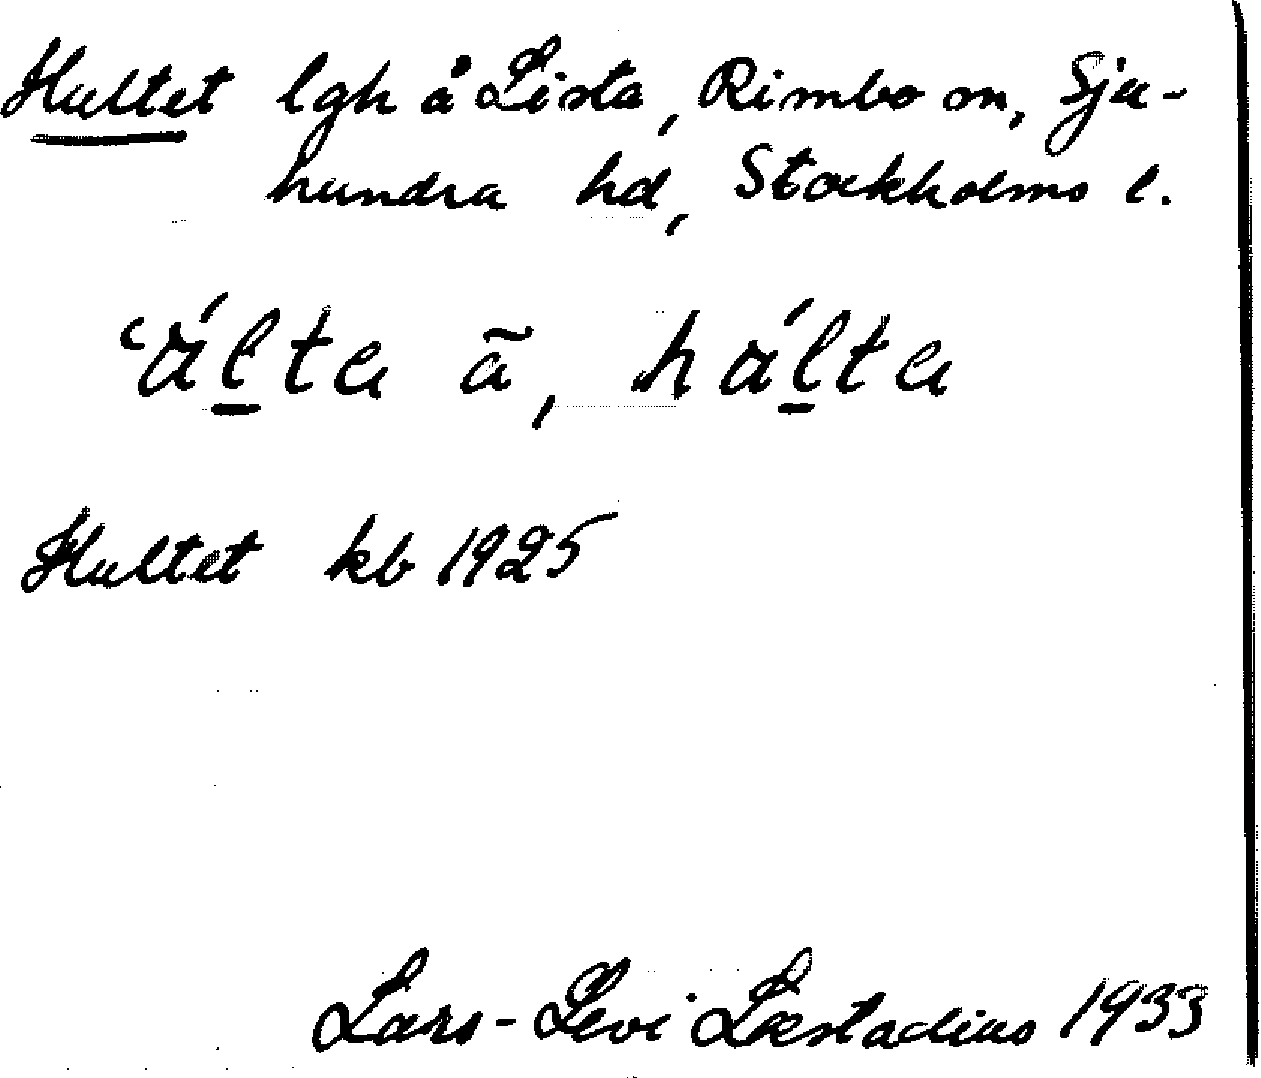 Hultet lgh å Lista, Rimbo sn, Sju-
hundra hd, Stockholms l.
ʿálta ã, hálta
Hultet kb 1925
Lars-Levi Læstadius 1933